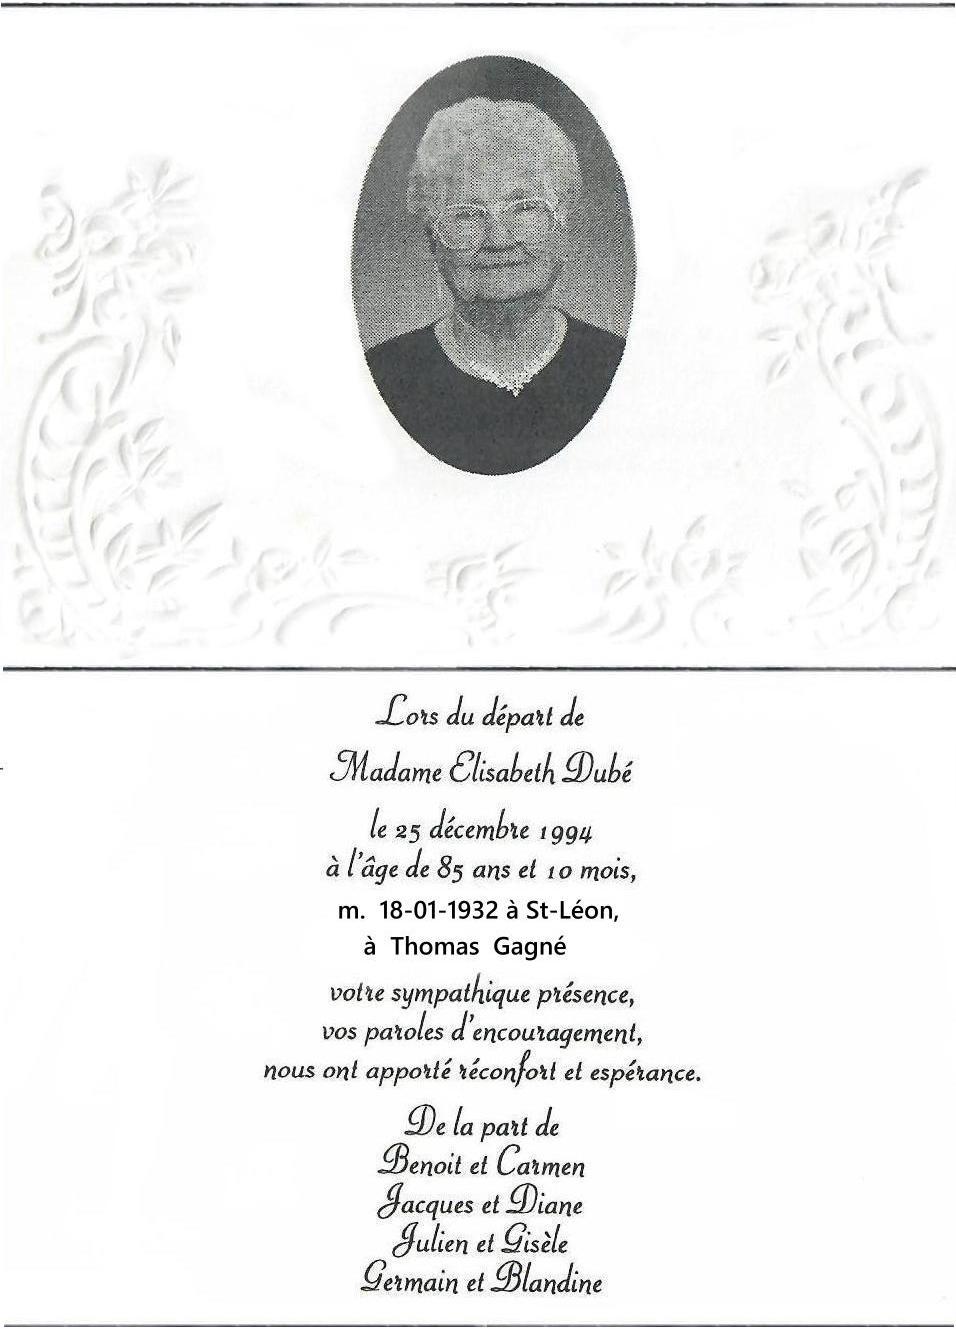 Lors du départ de
Madame Elisabeth Dubé
le 25 décembre 1994
à l'âge de 85 ans et 10 mois,
m. 18-01-1932 à St-Léon,
à Thomas Gagné
votre sympathique présence,
vos paroles d'encouragement,
nous ont apporté réconfort et espérance.
De la part de
Benoit et Carmen
Jacques et Diane
Julien et Gisèle
Germain et Blandine